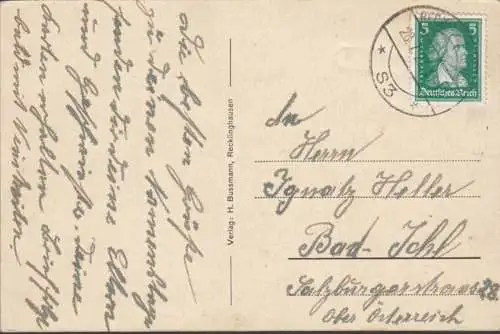 die besten Grüße
zu deinem Namenstage
senden dir deine Eltern
und Geschwister. Deine
Karten erhalten
bald mit Weiterem.
Verlag: H. Bussmann, Recklinghausen
5 5
Deutsches Reich
* S3 *
An
Herrn
Ignatz Heller
Bad-Ischl
Salzburgerstrasse 23.
Ober Österreich